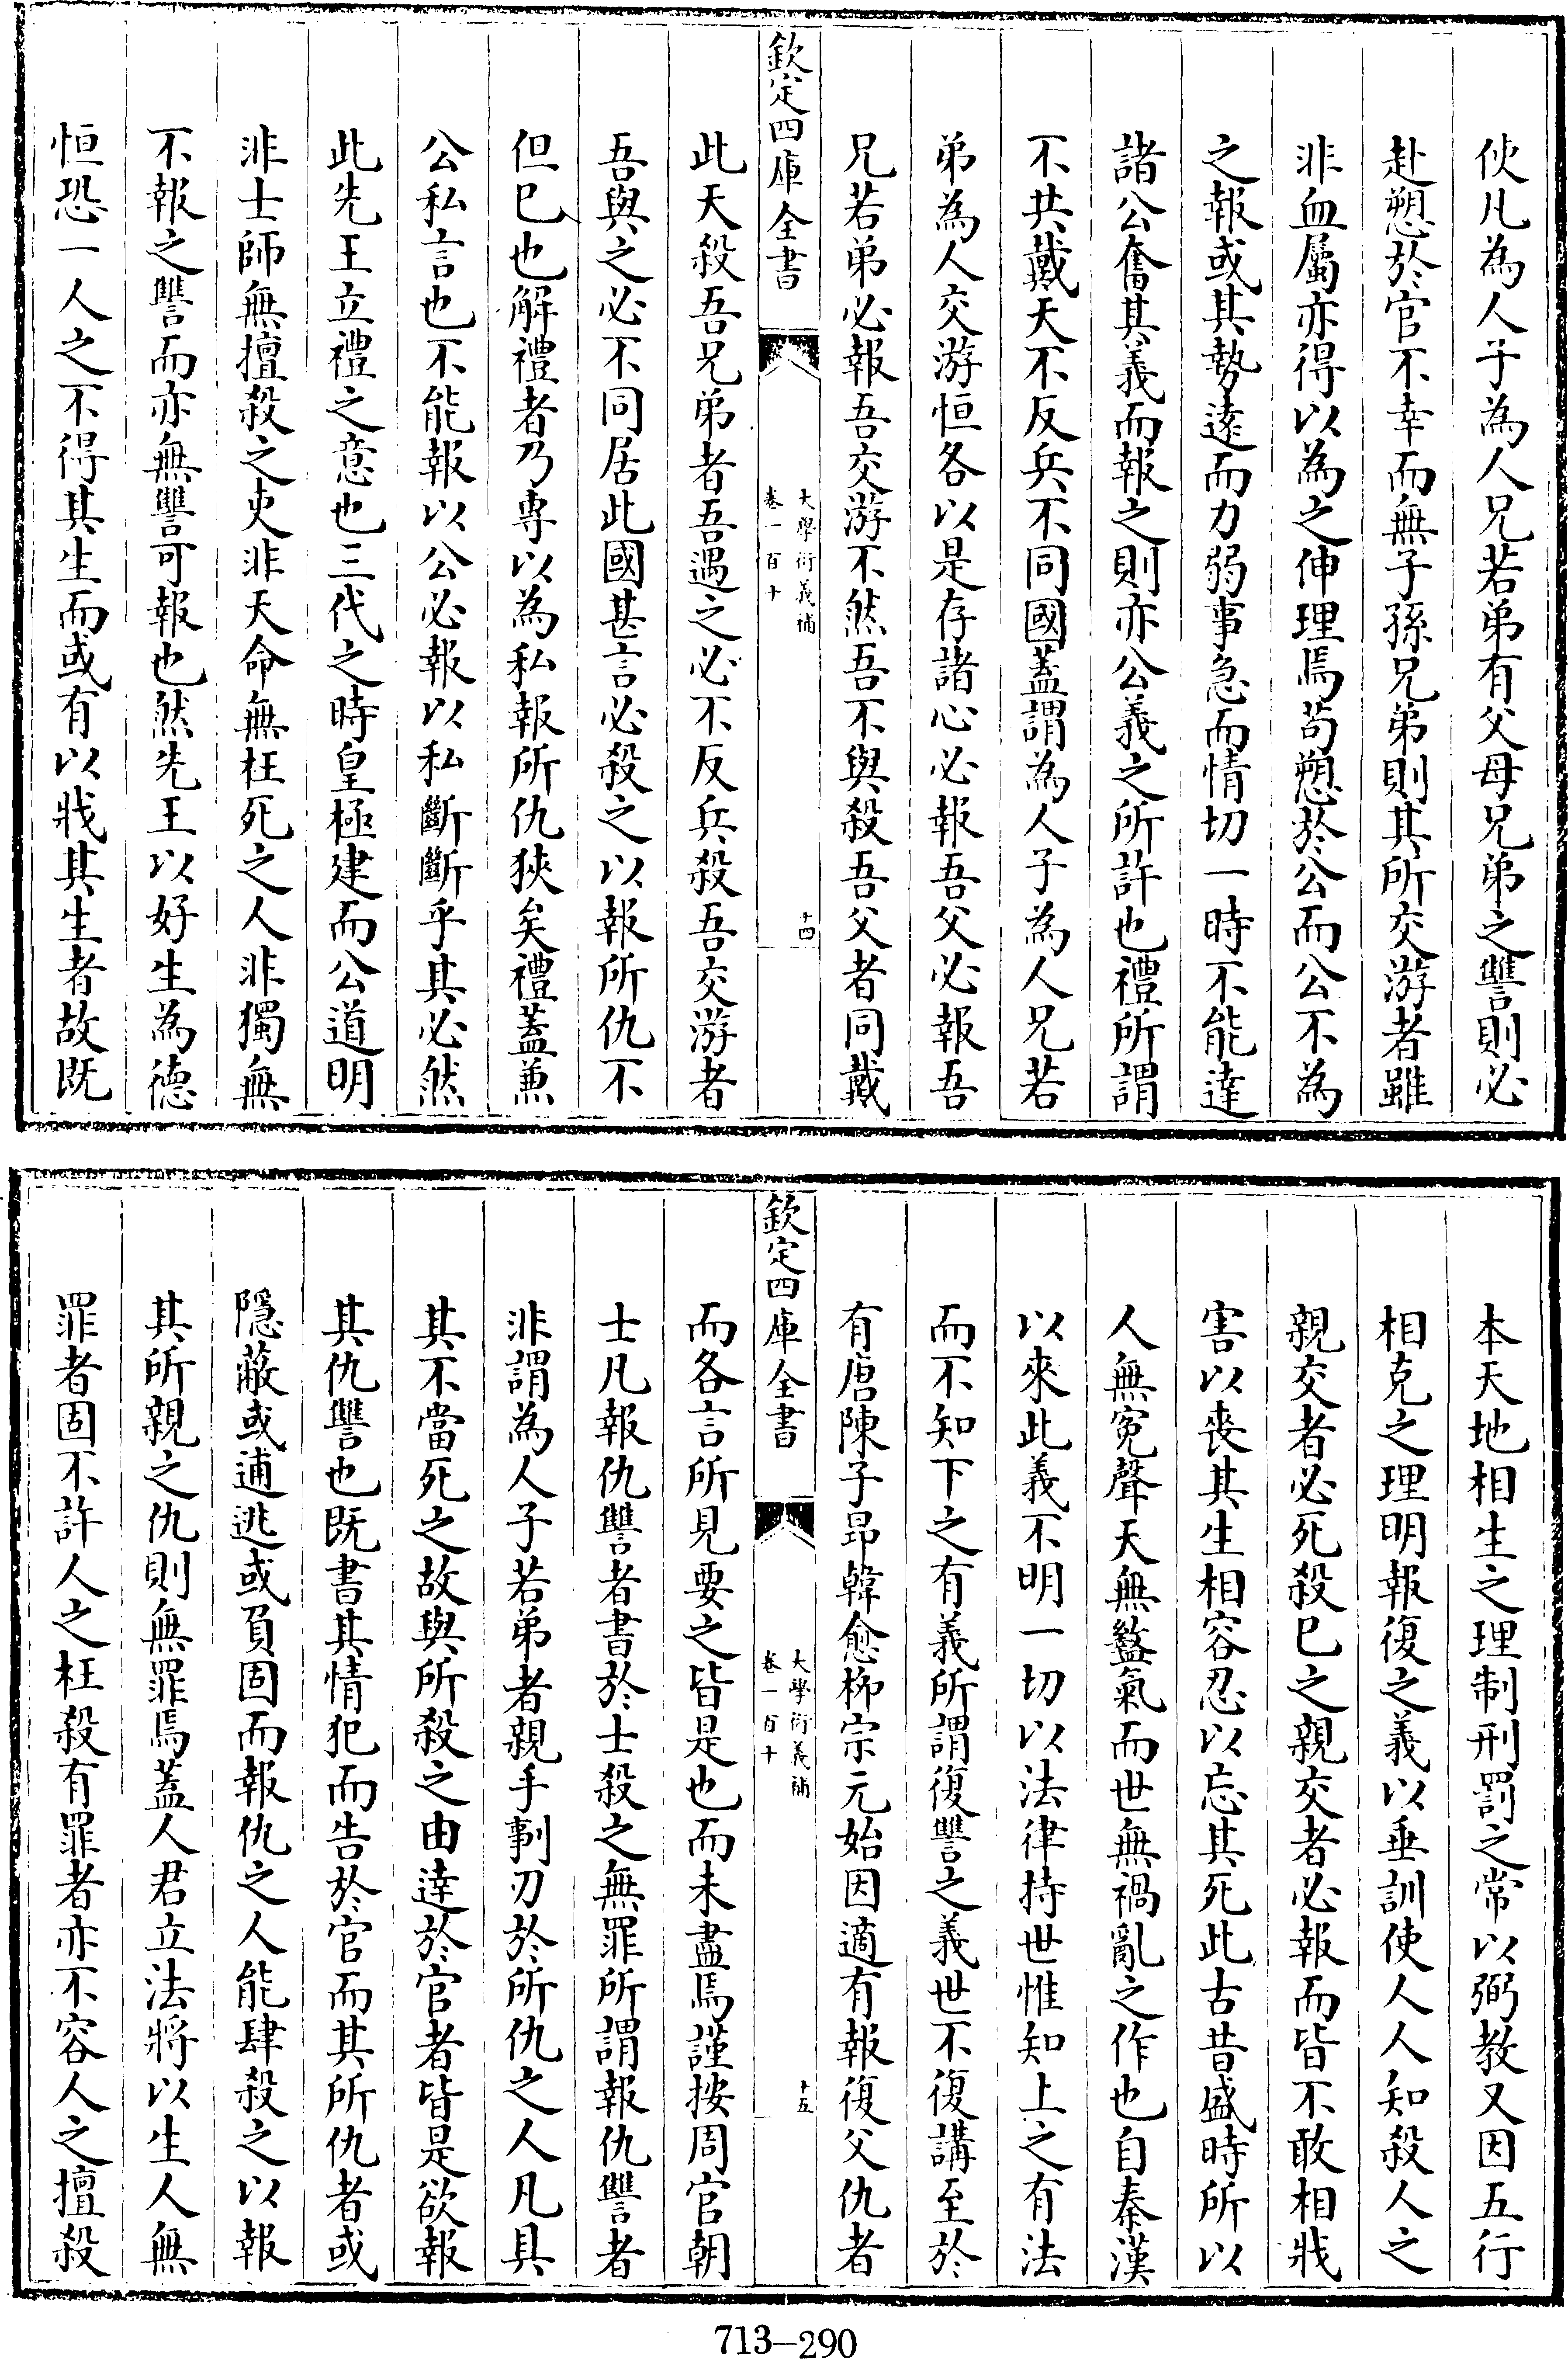 使凡為人子為人兄若弟有父母兄弟之讐則必
赴愬於官不幸而無子孫兄弟則其所交游者雖
非血屬亦得以為之伸理焉苟愬於公而公不為
之報或其勢遠而力弱事急而情切一時不能達
諸公奮其義而報之則亦公義之所許也禮所謂
不共戴天不反兵不同國蓋謂為人子為人兄若
弟為人交游恒各以是存諸心必報吾父必報吾
兄若弟必報吾交游不然吾不與殺吾父者同戴
欽定四庫全書
大學衍義補
卷一百十
十四
此天殺吾兄弟者吾遇之必不反兵殺吾交游者
吾與之必不同居此國甚言必殺之以報所仇不
但已也解禮者乃專以為私報所仇狹矣禮蓋兼
公私言也不能報以公必報以私斷斷乎其必然
此先王立禮之意也三代之時皇極建而公道明
非士師無擅殺之吏非天命無枉死之人非獨無
不報之讐而亦無讐可報也然先王以好生為德
恒恐一人之不得其生而或有以戕其生者故既
本天地相生之理制刑罰之常以弼教又因五行
相克之理明報復之義以垂訓使人人知殺人之
親交者必死殺已之親交者必報而皆不敢相戕
害以喪其生相容忍以忘其死此古昔盛時所以
人無寃聲天無盭氣而世無禍亂之作也自秦漢
以來此義不明一切以法律持世惟知上之有法
而不知下之有義所謂復讐之義世不復講至於
有唐陳子昂韓愈柳宗元始因適有報復父仇者
欽定四庫全書
大學衍義補
卷一百十
十五
而各言所見要之皆是也而未盡焉謹按周官朝
士凡報仇讐者書於士殺之無罪所謂報仇讐者
非謂為人子若弟者親手剚刃於所仇之人凡具
其不當死之故與所殺之由達於官者皆是欲報
其仇讐也既書其情犯而告於官而其所仇者或
隱蔽或逋逃或負固而報仇之人能肆殺之以報
其所親之仇則無罪焉蓋人君立法將以生人無
罪者固不許人之枉殺有罪者亦不容人之擅殺
713-290